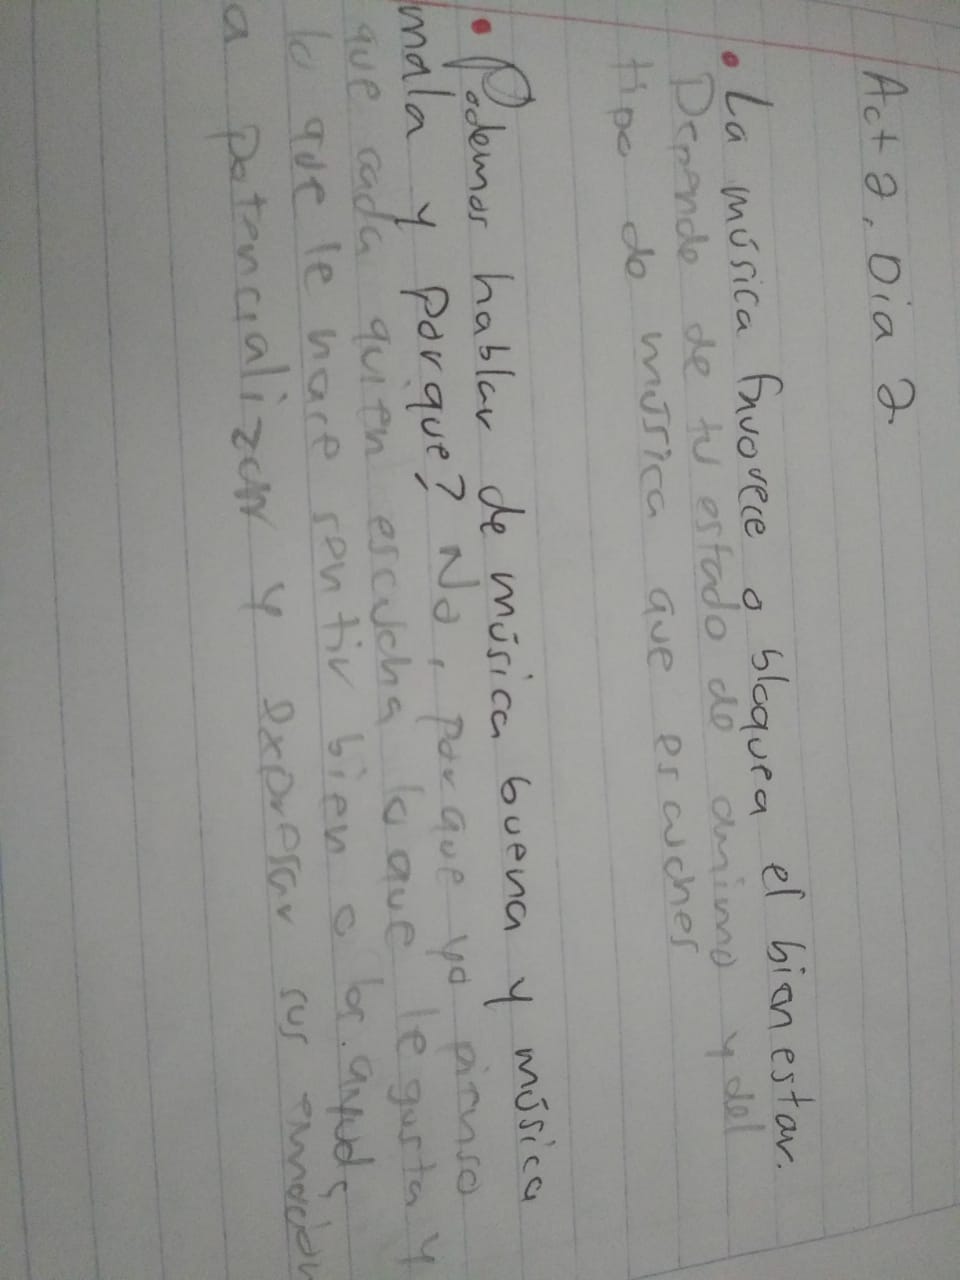 Act 2, Dia 2
• La música favorece o bloquea el bienestar.
Depende de tu estado de animo y del
tipo de música que escuches
• Podemos hablar de música buena y música
mala y porque? No, porque yo pienso
que cada quien escucha lo que le gusta y
lo que le hace sentir bien o los ayuda
a potencializar y expresar sus emoción